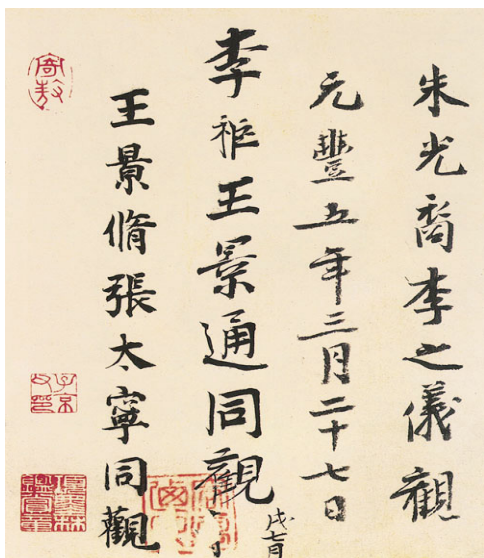 朱光裔李之儀觀
元豐五年三月二十七日
李秬王景通同觀
王景脩張太寧同觀
子京父印